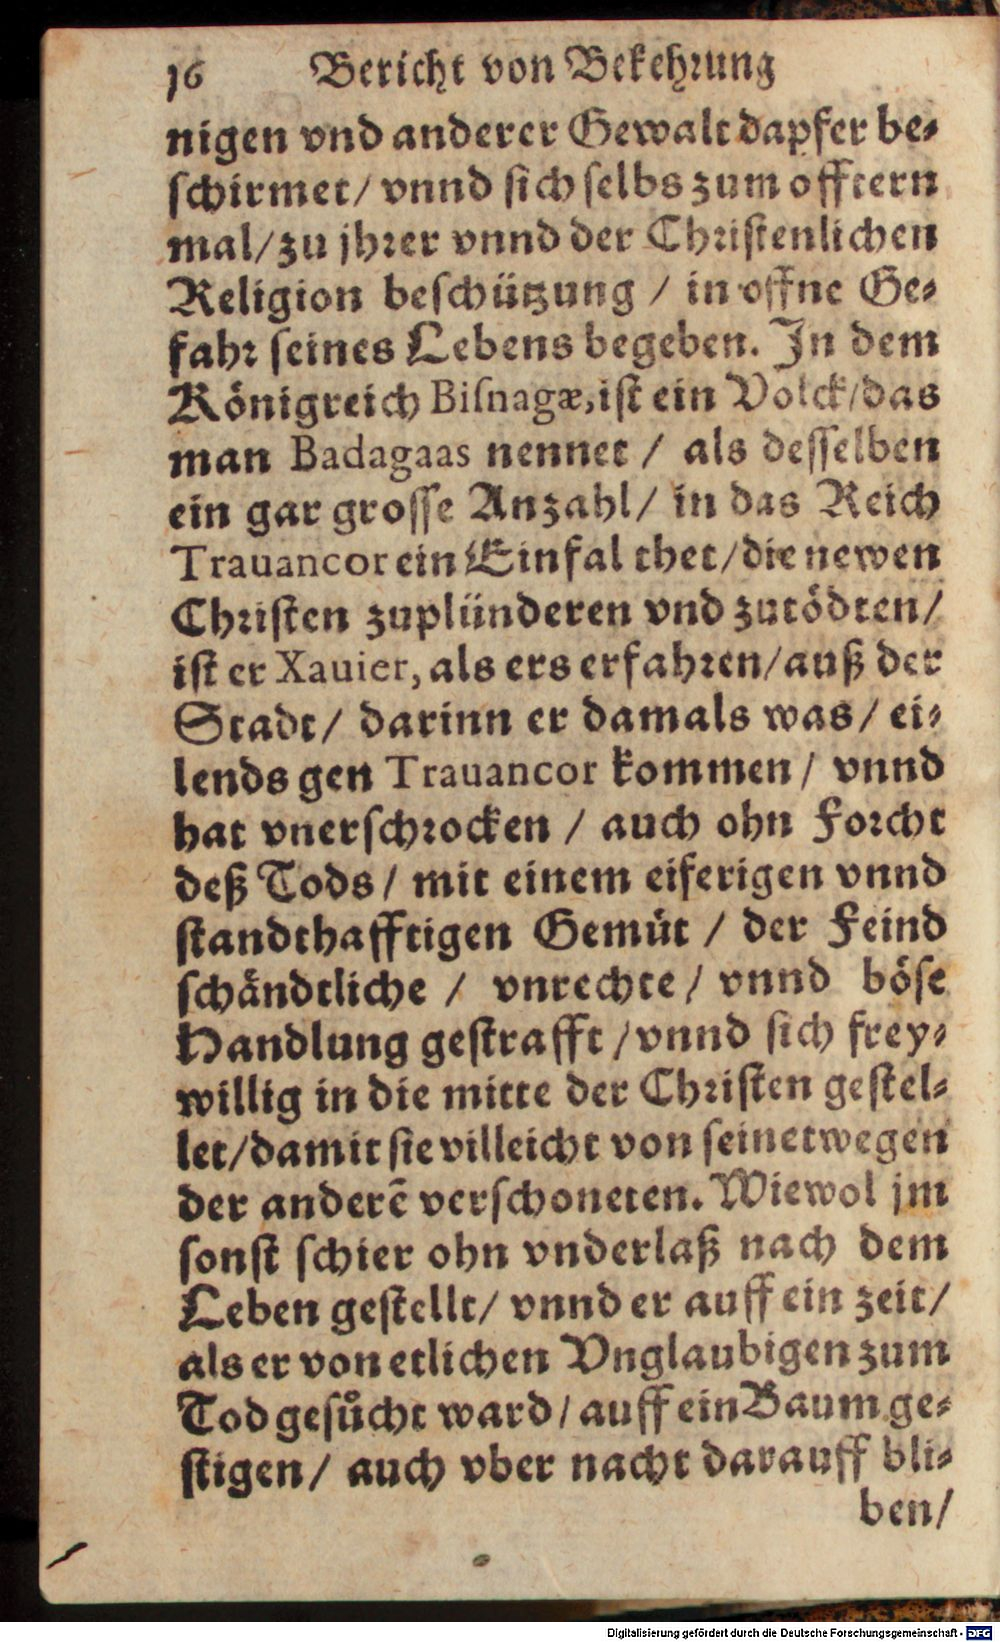 16 Bericht von Bekehrung
nigen vnd anderer Gewalt dapfer be⸗
schirmet/ vnnd sich selbs zum offtern
mal/ zu jhrer vnnd der Christenlichen
Religion beschützung / in offne Ge⸗
fahr seines Lebens begeben. In dem
Königreich Bisnagæ, ist ein Volck/ das
man Badagaas nennet / als desselben
ein gar grosse Anzahl/ in das Reich
Trauancor ein Einfal thet/ die newen
Christen zuplünderen vnd zutödten/
ist er Xauier, als ers erfahren/ auß der
Stadt/ darinn er damals was/ ei⸗
lends gen Trauancor kommen/ vnnd
hat vnerschrocken / auch ohn Forcht
deß Tods/ mit einem eiferigen vnnd
standthafftigen Gemüt / der Feind
schändtliche / vnrechte/ vnnd böse
Handlung gestrafft / vnnd sich frey⸗
willig in die mitte der Christen gestel⸗
let/ damit sie villeicht von seinetwegen
der anderē verschoneten. Wiewol jm
sonst schier ohn vnderlaß nach dem
Leben gestellt/ vnnd er auff ein zeit/
als er von etlichen Vnglaubigen zum
Tod gesůcht ward/ auff ein Baum ge⸗
stigen/ auch vber nacht darauff bli⸗
ben/
Digitalisierung gefördert durch die Deutsche Forschungsgemeinschaft - DFG